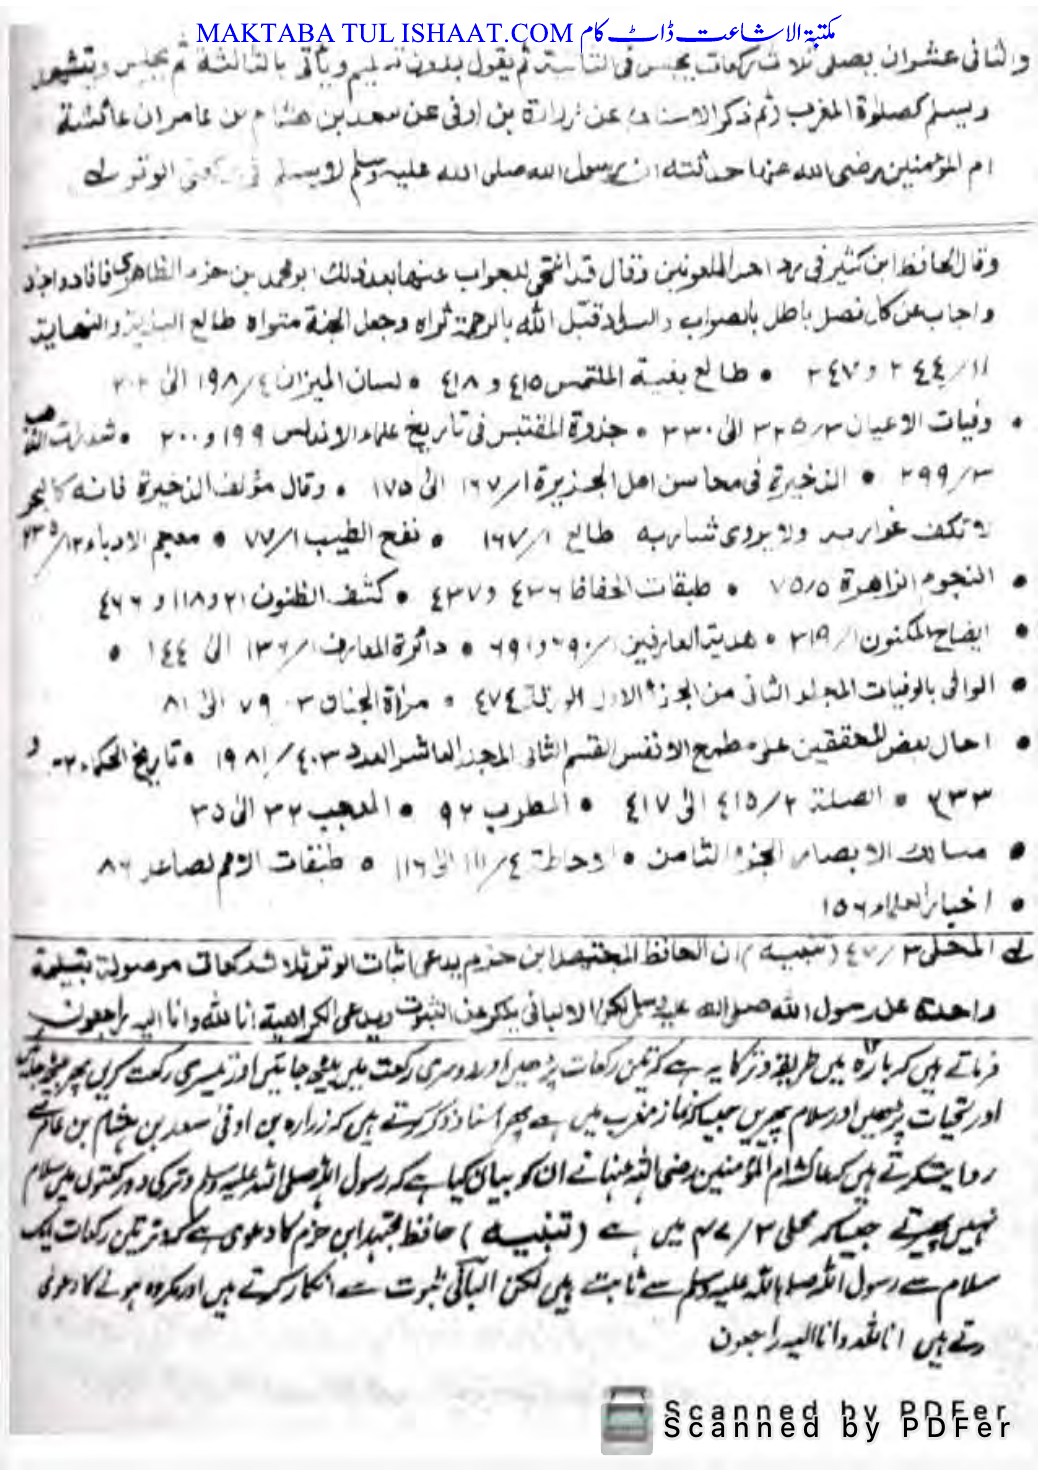 MAKTABA TUL ISHAAT.COM مکتبۃ الاشاعت ڈاٹ کام
والثانی عشران یصلی ثلاث رکعات یجلس فی الثانیة ثم یقوم بدون تسلیم ویأتی بالثالثة ثم یجلس ویتشهد
ویسلم کصلوة المغرب ثم ذکر الاسناد عن زرارة بن اوفی عن سعد بن هشام بن عامر ان عائشة
ام المؤمنین رضی الله عنها حدثته ان رسول الله صلی الله علیه وسلم لا یسلم فی رکعتی الوتر لے
وقال الحافظ ابن کثیر فی رد احد الملعونین وقال قد انتخی للجواب عنها بعد ذلک ابو محمد بن حزم الظاهری فافاد واجاد
واجاب عن کل فصل باطل بالصواب والسداد فقبل الله بالرحمة ثراه وجعل الجنة مثواه طالع البدایة والنهایة
۱۱/۲٤٤ و ۲٤۷ • طالع بغیة الملتمس ٤۱۵ و ٤۱۸ • لسان المیزان ٤/۱۹۸ الی ۲۰۲
• وفیات الاعیان ۳/۳۲۵ الی ۳۳۰ • جذوة المقتبس فی تاریخ علماء الاندلس ۱۹۹ و ۲۰۰ • شذرات الذهب
۳/۲۹۹ • الذخیرة فی محاسن اهل الجزیرة ۱/۱٦۷ الی ۱۷۵ • وقال مؤلف الذخیرة فانه کالبحر
لا تکف غواربه ولا یروی شاربه طالع ۱/۱٦۷ • نفح الطیب ۱/۷۷ • معجم الادباء ۱۲/۲۳۵
• النجوم الزاهرة ۵/۷۵ • طبقات الحفاظ ٤۳٦ و ٤۳۷ • کشف الظنون ۲۱ و ۱۱۸ و ٤٦٦
• ایضاح المکنون ۱/۳۱۹ • هدیة العارفین ۱/٦۹۰ و ٦۹۱ • دائرة المعارف ۱/۱۳٦ الی ۱٤٤ •
• الوافی بالوفیات المجلد الثانی من الجزء الاول الورقة ٤۷٤ • مرأة الجنان ۳ ۷۹ الی ۸۱
• احال بعض المحققین علی مطمح الانفس القسم الثانی المجلد العاشر العدد ۳-٤/۱۹۸۱ • تاریخ الحکماء ۲۳۲ و
۲۳۳ • الصلة ۲/٤۱۵ الی ٤۱۷ • المطرب ۹۲ • المعجب ۳۲ الی ۳۵
• مسالک الابصار الجزء الثامن • احاطة ٤/۱۱۱ الی ۱۱٦ • طبقات الامم لصاعد ۸٦
• اخبار العلماء ۱۵٦
لے المحلی ۳/٤۷ (تنبیه) ان الحافظ المجتهد ابن حزم یدعی اثبات الوتر ثلاث رکعات موصولة بتسلیمة
واحدة عن رسول الله صلی الله علیه وسلم لکن الالبانی ینکر عن الثبوت ویدعی الکراهیة انا لله وانا الیه راجعون
فرماتے ہیں کہ بارہ ۱۲ میں طریقہ وتر کا یہ ہے کہ تین رکعات پڑھیں اور دوسری رکعت میں بیٹھ جائیں اور تیسری رکعت کریں پھر بیٹھ جائیں
اور تحیات پڑھیں اور سلام پھیریں جیسا کہ نماز مغرب میں ہے پھر اسناد ذکر کرتے ہیں کہ زرارہ بن اوفی سعد بن ہشام بن عامر سے
روایت کرتے ہیں کہ عائشہ ام المؤمنین رضی اللہ عنہا نے ان کو بیان کیا ہے کہ رسول اللہ صلی اللہ علیہ وسلم وتر کی دو رکعتوں میں سلام
نہیں پھیرتے جیسا کہ محلی ۳/۴۷ میں ہے (تنبیہ) حافظ مجتہد ابن حزم کا دعوی ہے کہ وتر تین رکعات ایک
سلام سے رسول اللہ صلی اللہ علیہ وسلم سے ثابت ہیں لیکن البانی ثبوت سے انکار کرتے ہیں اور مکروہ ہونے کا دعوی
کرتے ہیں انا للہ وانا الیہ راجعون
Scanned by PDFer
Scanned by PDFer